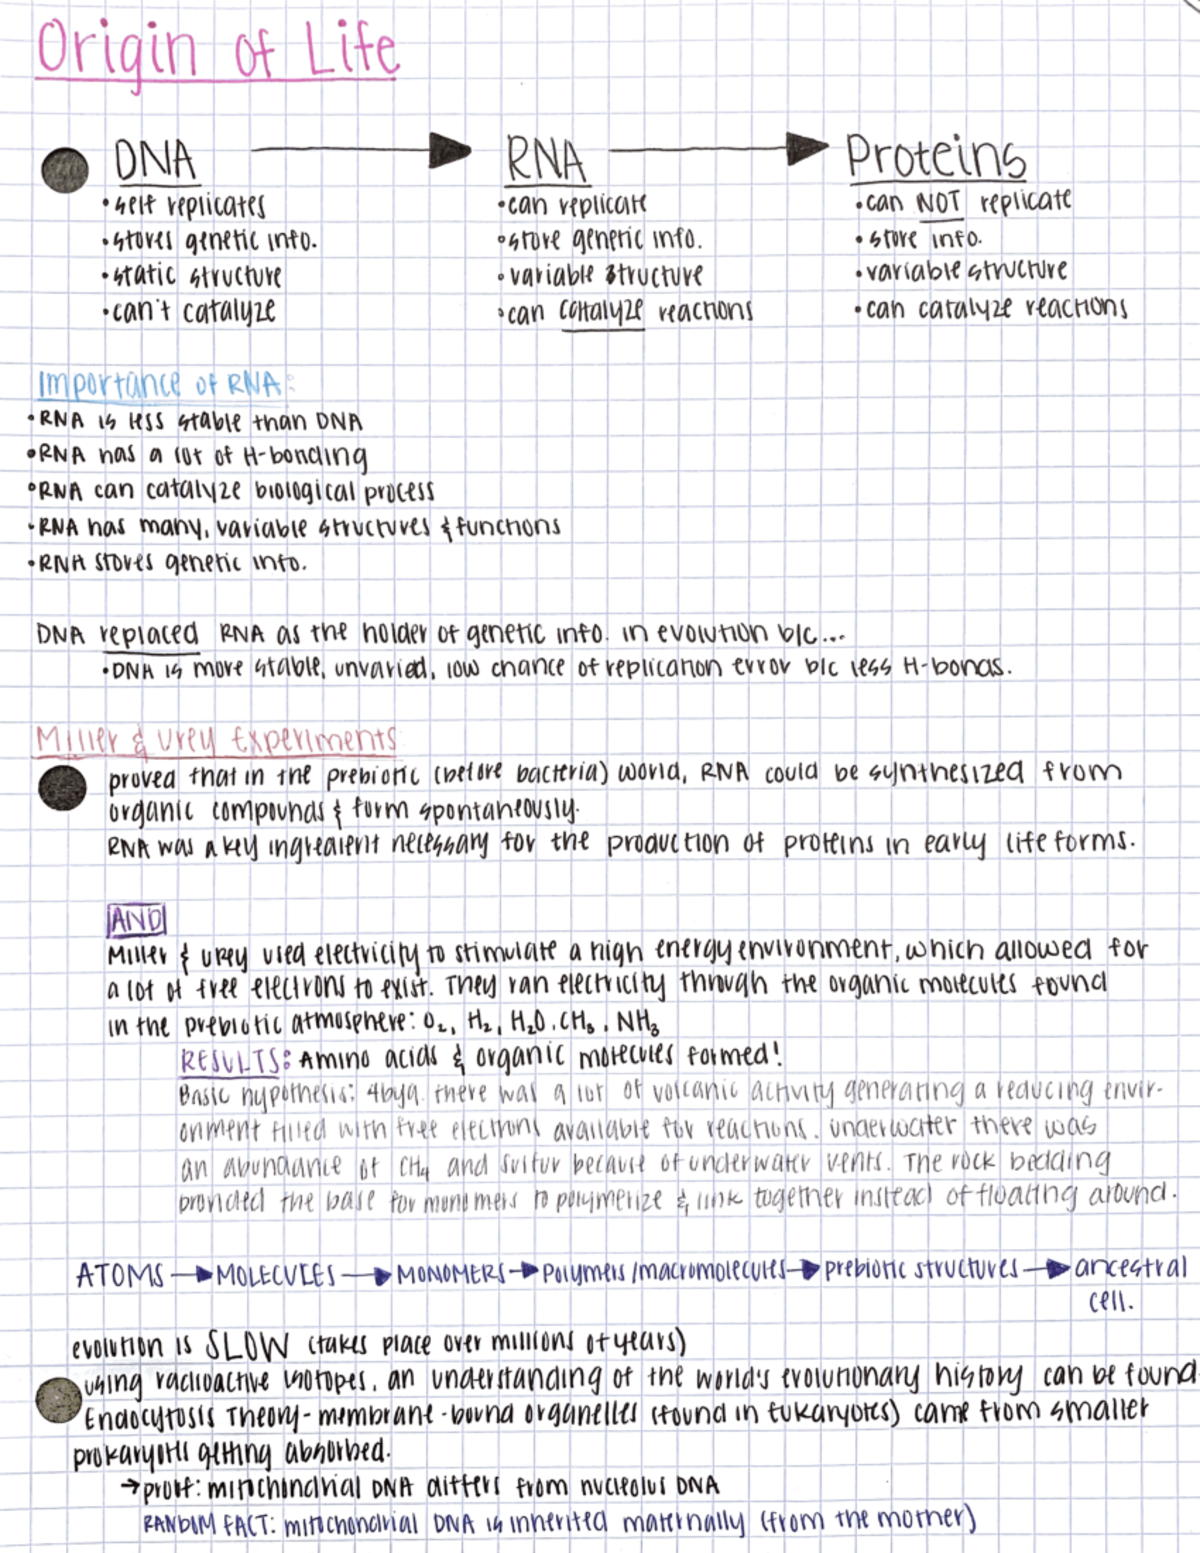 Origin of Life
DNA → RNA → Proteins
• self replicates
• stores genetic info.
• static structure
• can't catalyze
• can replicate
• store genetic info.
• variable structure
• can catalyze reactions
• can NOT replicate
• store info.
• variable structure
• can catalyze reactions
Importance of RNA:
• RNA is less stable than DNA
• RNA has a lot of H-bonding
• RNA can catalyze biological process
• RNA has many, variable structures & functions
• RNA stores genetic info.
DNA replaced RNA as the holder of genetic info. in evolution b/c...
• DNA is more stable, unvaried, low chance of replication error b/c less H-bonds.
Miller & Urey Experiments
proved that in the prebiotic (before bacteria) world, RNA could be synthesized from
organic compounds & form spontaneously.
RNA was a key ingredient necessary for the production of proteins in early life forms.
AND
Miller & Urey used electricity to stimulate a high energy environment, which allowed for
a lot of free electrons to exist. They ran electricity through the organic molecules found
in the prebiotic atmosphere: O₂, H₂, H₂O, CH₃, NH₃
RESULTS: Amino acids & organic molecules formed!
Basic hypothesis: 4bya. there was a lot of volcanic activity generating a reducing envir-
onment filled with free electrons available for reactions. underwater there was
an abundance of CH₄ and sulfur because of underwater vents. The rock bedding
provided the base for monomers to polymerize & link together instead of floating around.
ATOMS → MOLECULES → MONOMERS → Polymers/macromolecules → prebiotic structures → ancestral
cell.
evolution is SLOW (takes place over millions of years)
using radioactive isotopes, an understanding of the world's evolutionary history can be found
Endocytosis Theory - membrane-bound organelles (found in Eukaryotes) came from smaller
prokaryotes getting absorbed.
→ proof: mitochondrial DNA differs from nucleolus DNA
RANDOM FACT: mitochondrial DNA is inherited maternally (from the mother)